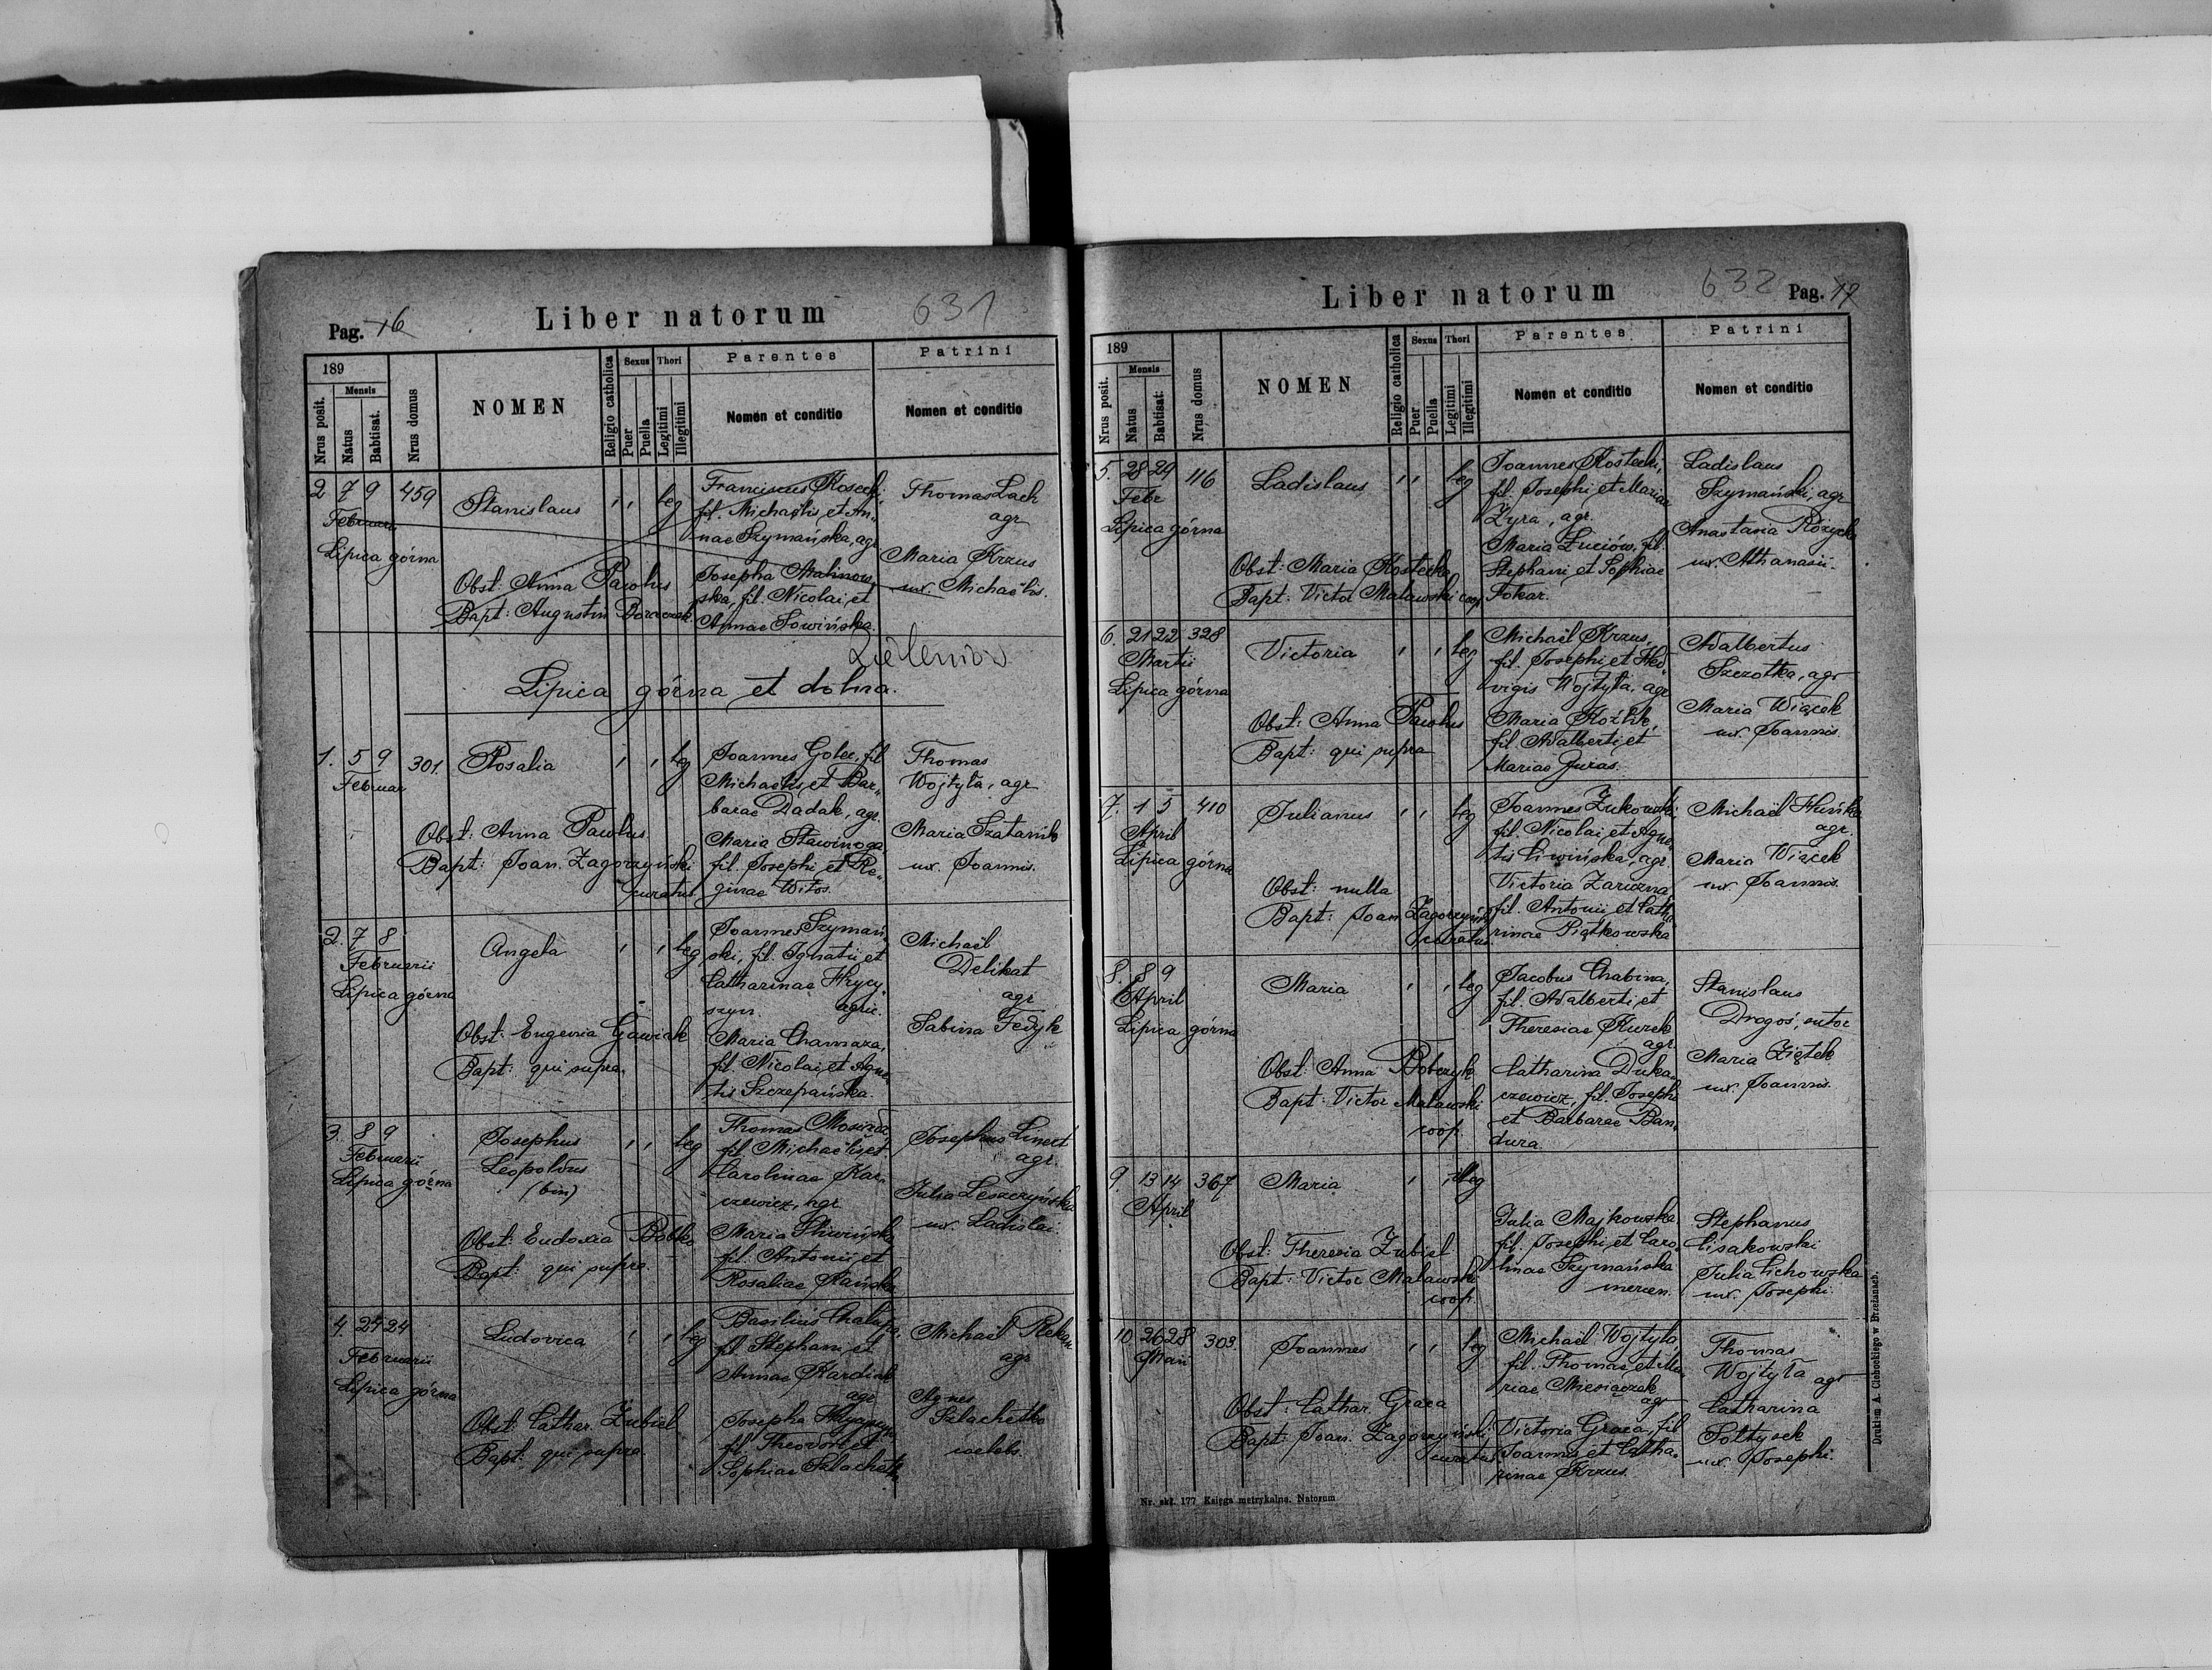 Pag. 16
Liber natorum
631
189
Nrus posit.
Mensis
Natus
Babtisat.
Nrus domus
NOMEN
Religio catholica
Sexus
Puer
Puella
Thori
Legitimi
Illegitimi
Parentes
Nomen et conditio
Patrini
Nomen et conditio
2 7 9 459
Februarii
Lipica górna
Stanislaus
leg
Obst: Anna Pawlus
Bapt: Augustin
Franciscus
fil. Michaëlis et An„
nae Szymańska, agr
Josepha Malinow„
ska, fil. Nicolai et
Annae Sowińska.
Thomas Lach
agr
Maria Krzus
ux. Michaëlis.
Lipica górna et dolna.
1. 5 9 301.
Februar
Rosalia
leg
Obst: Anna Pawlus.
Bapt: Joan. Zagorzyński
curatus
Joannes Golec, fil
Michaëlis et Bar„
barae Dadak, agr.
Maria Stawinoga,
fil. Josephi et Re„
ginae Witos.
Thomas
Wojtyła, agr
Maria Szatanik
ux. Joannis.
2. 7 8
Februarii
Lipica górna
Angela
leg
Obst: Eugenia Gawiak
Bapt: qui supra.
Joannes Szymań„
ski, fil. Ignatii et
Catharinae Hrycy„
szyn. agric.
Maria Chamaza,
fil. Nicolai et Agne„
tis Szczepańska.
Michaël
Delikat
agr
Sabina Fedyk
3. 8 9
Februarii
Lipica górna
Josephus
Leopoldus
(bin)
leg
Obst: Eudoxia Bobko
Bapt: qui supra.
Thomas
fil. Michaëlis et
Carolinae Kar„
czewicz, agr
Maria Śliwińska
fil. Antonii et
Rosaliae Kańska
Josephus Linert
agr.
Julia Leszczyńska
ux. Ladislai.
4. 24 24
Februarii
Lipica górna
Ludovica
leg
Obst: Cathar. Zubiel
Bapt: qui supra.
Basilius Chałupa,
fil Stephani et
Annae Kardiak
agr
Josepha
fil. Theodori et
Sophiae
Michaël
agr
Agnes
Szlachetko
caelebs.
Liber natorum
632
Pag. 17
189
Nrus posit.
Mensis
Natus
Babtisat.
Nrus domus
NOMEN
Religio catholica
Sexus
Puer
Puella
Thori
Legitimi
Illegitimi
Parentes
Nomen et conditio
Patrini
Nomen et conditio
5. 28 29 116
Febr
Lipica górna
Ladislaus
leg
Obst: Maria Kostecka
Bapt: Victor Malawski coop
Joannes Kostecki,
fil. Josephi et Mariae
Żyra, agr.
Maria Łuciów, fil.
Stephani et Sophiae
Tokar.
Ladislaus
Szymański, agr
Anastasia Różycka
ux. Athanasii.
6. 21 22 328
Martii
Lipica górna
Victoria
leg
Obst: Anna Pawlus
Bapt: qui supra
Michaël Krzus,
fil. Josephi et Hed„
vigis Wojtyła, agr
Maria Koźlik,
fil. Adalberti et
Mariae Juras.
Adalbertus
Szczotka, agr
Maria Wiącek
ux. Joannis.
7. 1 5 410
April
Lipica górna
Julianus
leg
Obst: nulla
Bapt: Joan Zagorzyński
curatus.
Joannes Żukowski,
fil. Nicolai et Agne„
tis Liwińska, agr.
Victoria Zariczna,
fil. Antonii et Catha„
rinae Piątkowska
Michaël Huńka
agr.
Maria Wiącek
ux. Joannis.
8. 8 9
April
Lipica górna
Maria
leg
Obst: Anna Bobczyk
Bapt: Victor Malawski
coop.
Jacobus Chabina,
fil. Adalberti et
Theresiae Kurek
agr.
Catharina Duka„
czewicz, fil. Josephi
et Barbarae Ban„
dura.
Stanislaus
Drogoś, sutor
Maria Ziętek
ux. Joannis.
9. 13 14 367
April
Maria
illeg
Obst: Theresia Zubiel
Bapt: Victor Malawski
coop.
Julia Majkowska
fil. Josephi et Caro„
linae Szymańska
mercen.
Stephanus
Lisakowski
Julia Cichowska
ux. Josephi.
10 26 28 303.
Maii
Joannes
leg
Obst Cathar. Graca
Bapt: Joan. Zagorzyński
curatus
Michaël Wojtyła,
fil. Thomae et Ma„
riae Miesiączek
agr
Victoria Graca, fil
Joannis et Catha„
rinae Krzus.
Thomas
Wojtyła agr
Catharina
Sołtysek
ux. Josephi.
Nr. skł. 177 Księga metrykalna. Natorum
Drukiem A. Ciebockiego w Brzeżanach.